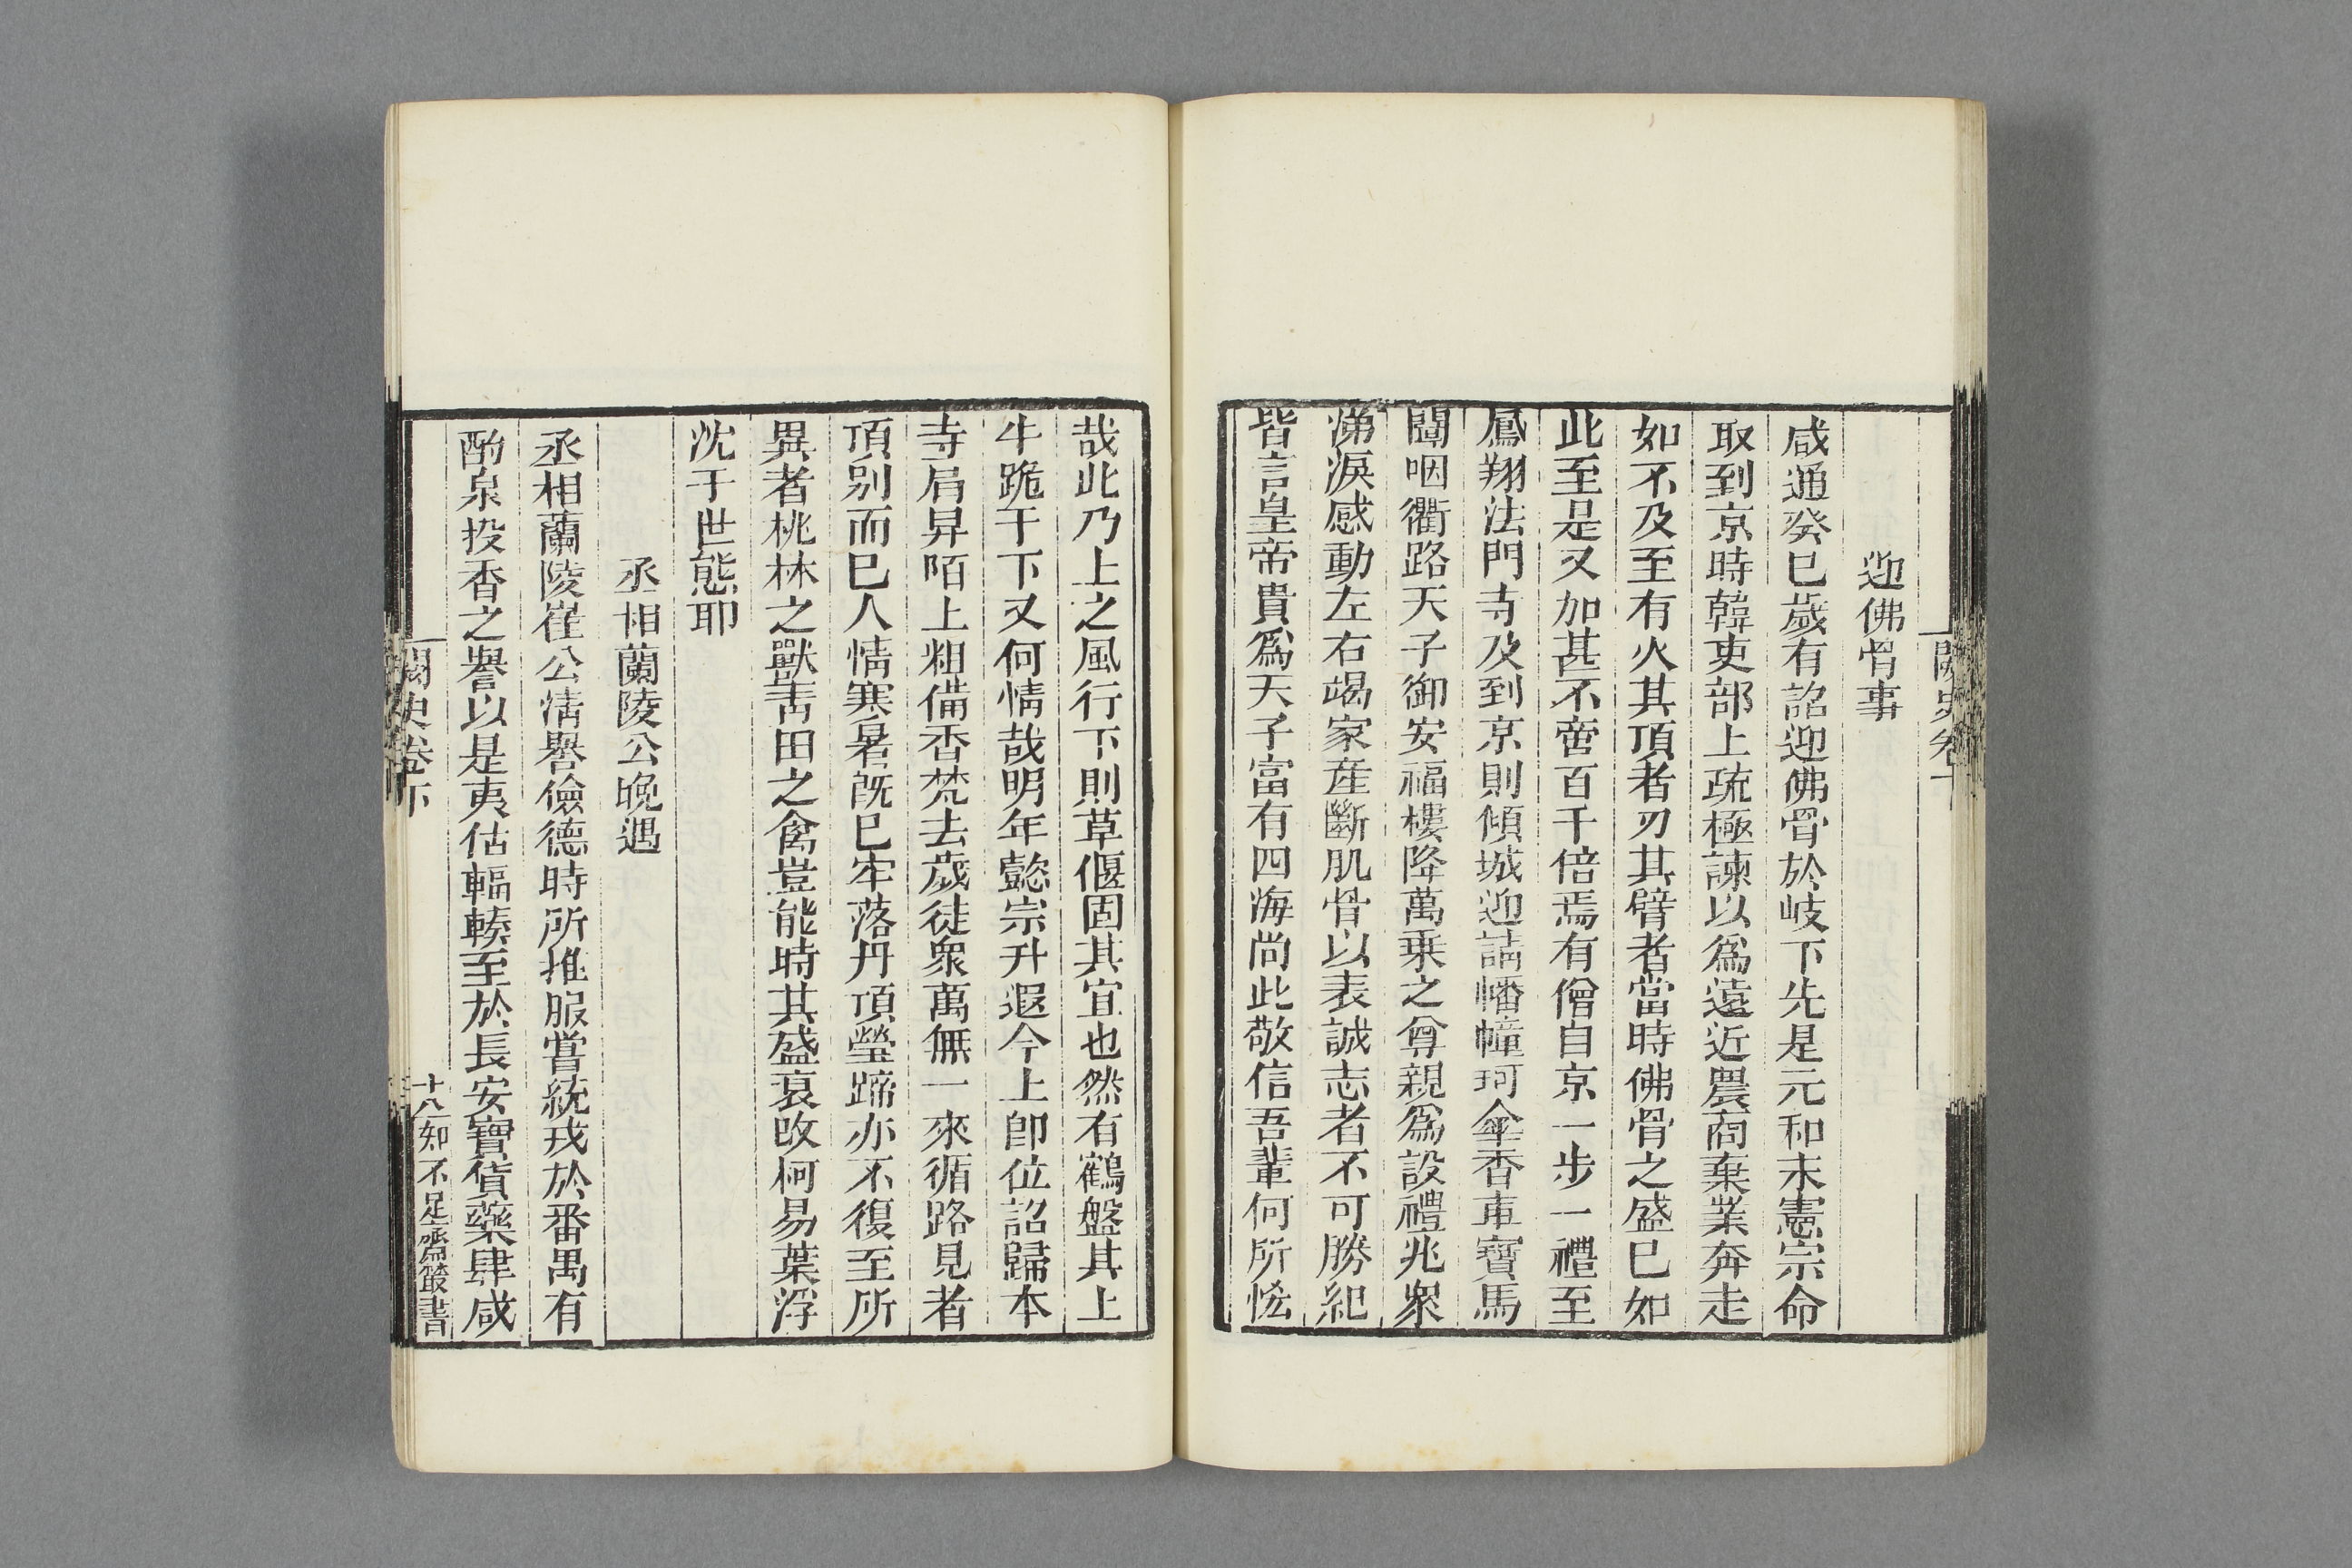 迎佛骨事
咸通癸巳歲有詔迎佛骨於岐下先是元和末憲宗命
取到京時韓吏部上疏極諫以爲遠近農商棄業奔走
如不及至有火其頂者刃其臂者當時佛骨之盛已如
此至是又加甚不啻百千倍焉有僧自京一步一禮至
鳳翔法門寺及到京則傾城迎請幡幢珂傘香車寶馬
闐咽衢路天子御安福樓降萬乗之尊親爲設禮兆衆
涕淚感動左右竭家産斷肌骨以表誠志者不可勝紀
皆言皇帝貴爲天子富有四海尚此敬信吾輩何所恡
哉此乃上之風行下則草偃固其宜也然有鶴盤其上
牛跪于下又何情哉明年懿宗升遐今上卽位詔歸本
寺肩舁陌上粗備香梵去歲徒衆萬無一來循路見者
頂别而已人情寒暑旣已牢落丹頂瑩蹄亦不復至所
異者桃林之獸靑田之禽豈能時其盛衰改柯易葉浮
沈于世態耶
丞相蘭陵公晚遇
丞相蘭陵崔公淸譽儉德時所推服嘗統戎於番禺有
酌泉投香之譽以是夷估輻輳至於長安寶貨藥肆咸
闕史卷下
十八
知不足齋叢書